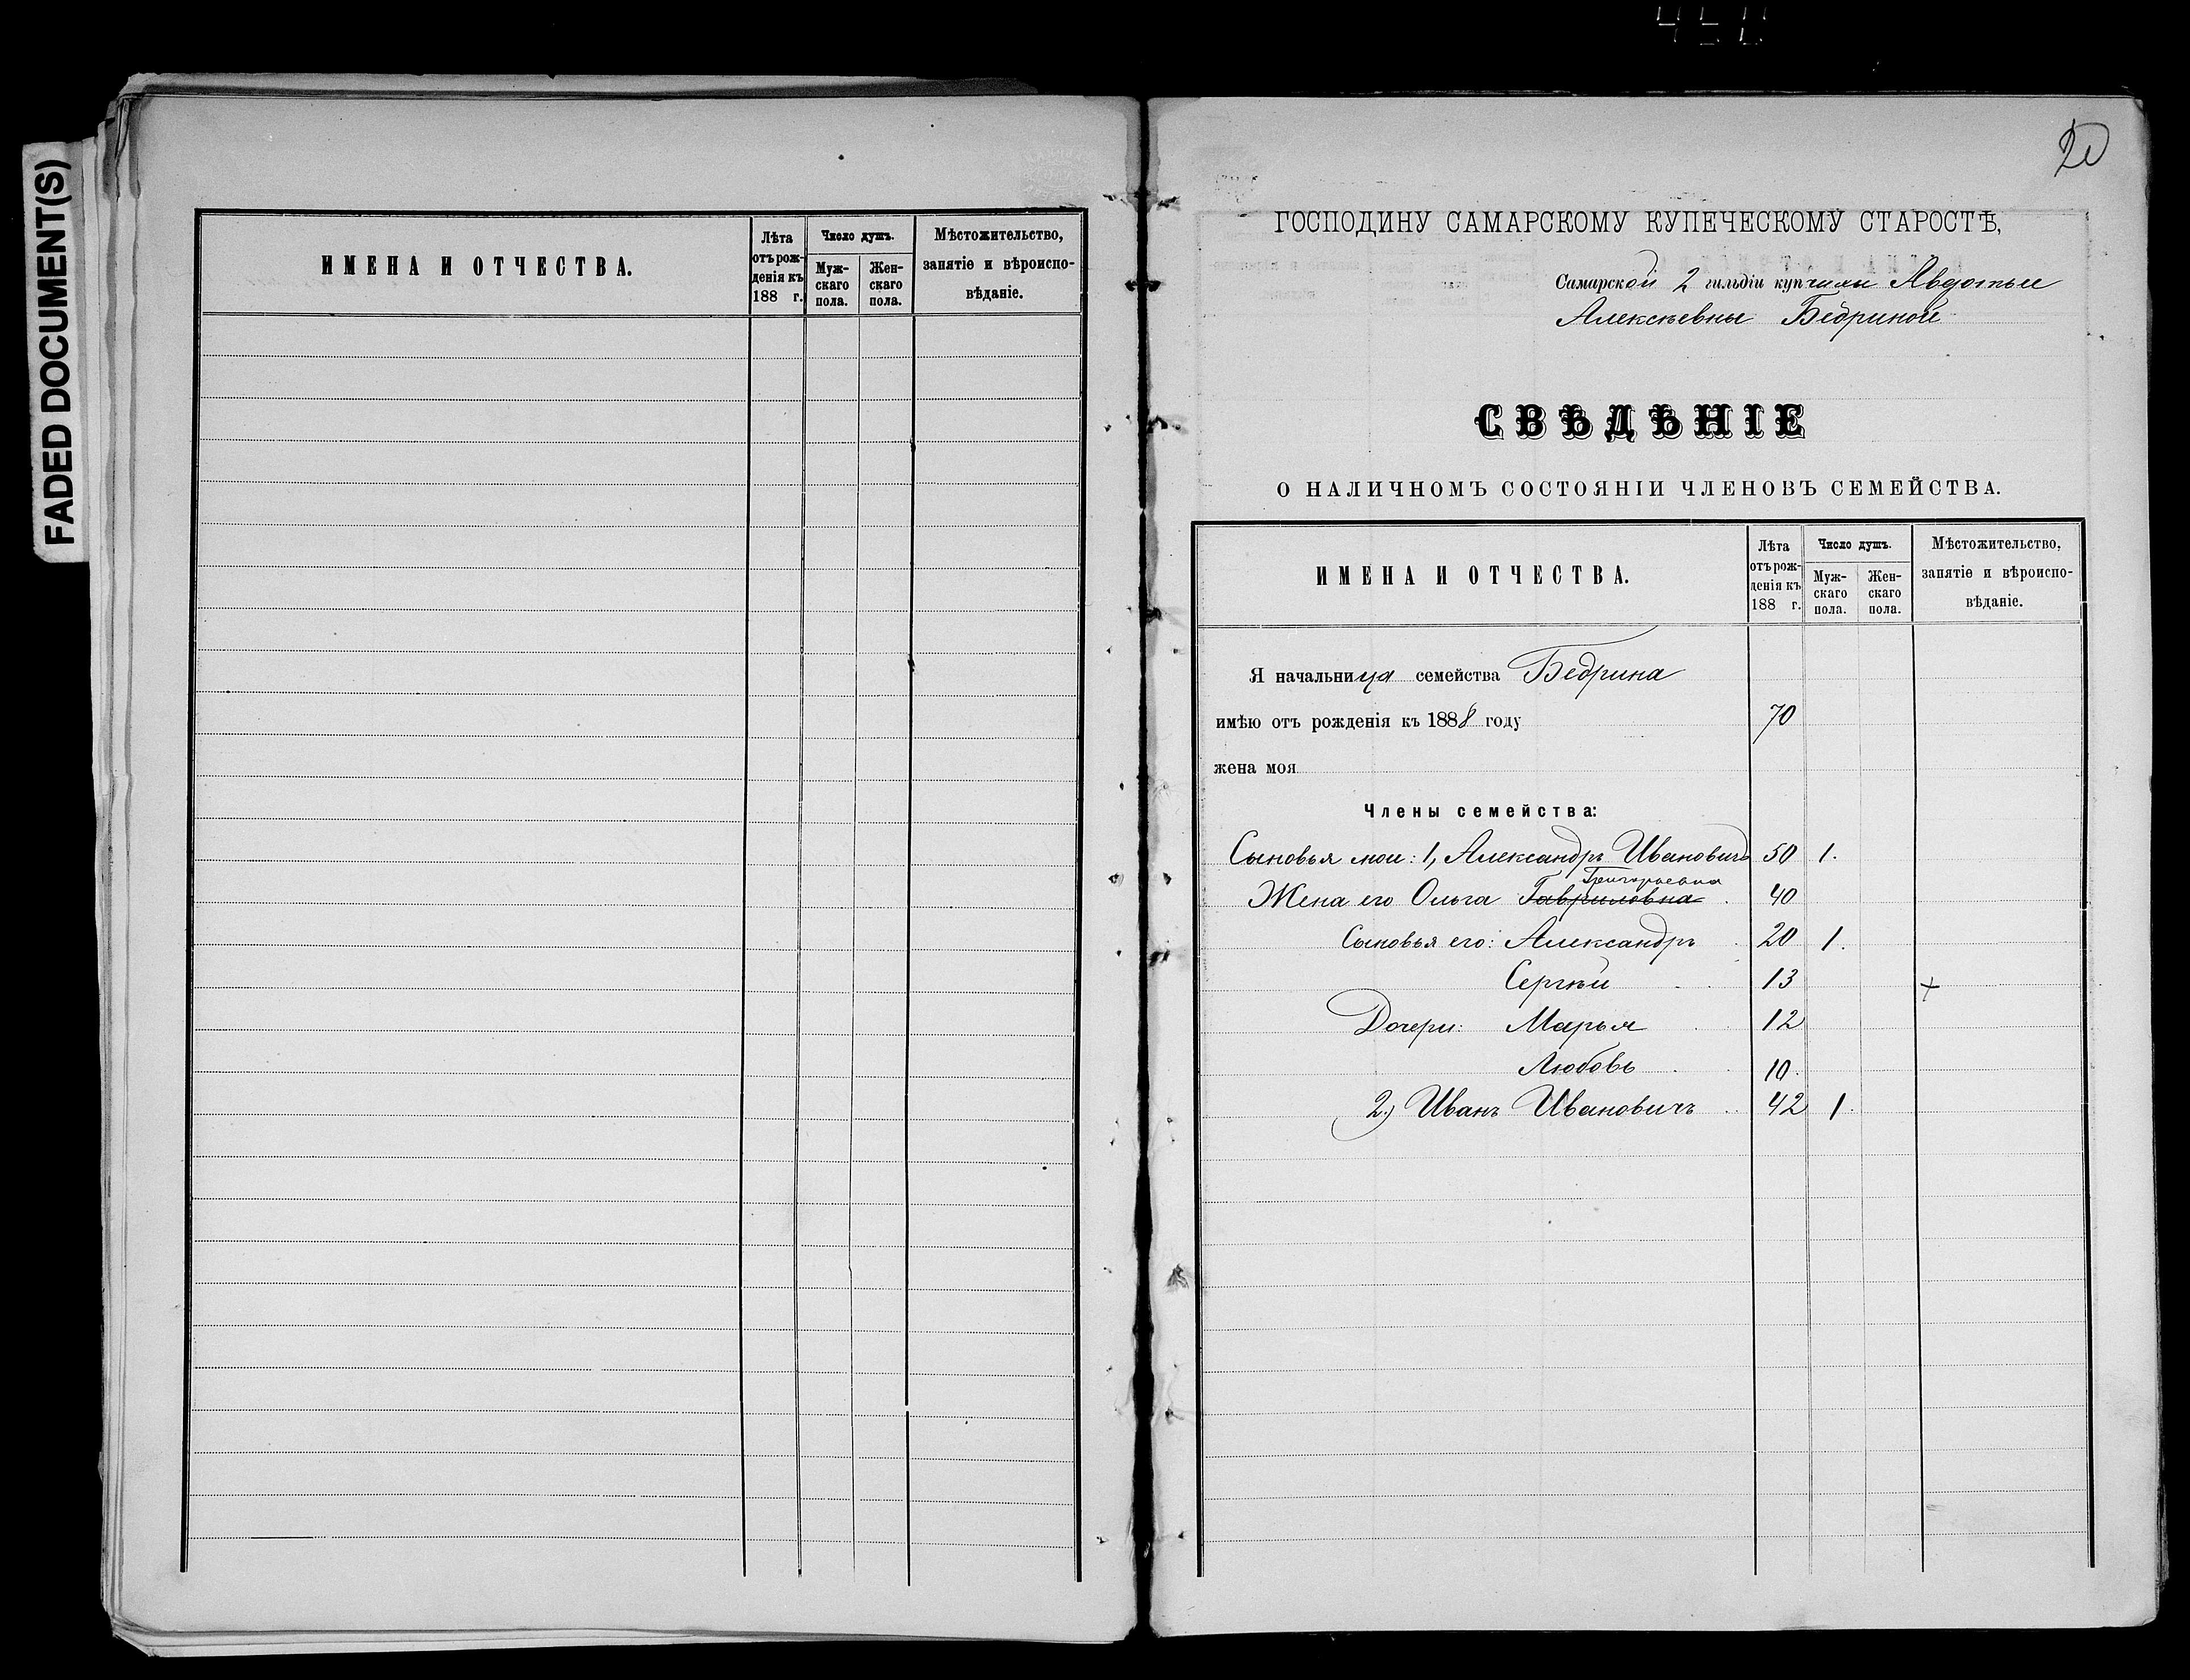 FADED DOCUMENT(S)
ИМЕНА И ОТЧЕСТВА.
Лѣта отъ рожденія къ 188 г.
Число душъ.
Мужскаго пола.
Женскаго пола.
Мѣстожительство, занятіе и вѣроисповѣданіе.
20
ГОСПОДИНУ САМАРСКОМУ КУПЕЧЕСКОМУ СТАРОСТѢ,
Самарской 2 гильдіи купчихи Авдотьи
Алексѣевны Бедриной
СВѢДѢНІЕ
О НАЛИЧНОМЪ СОСТОЯНІИ ЧЛЕНОВЪ СЕМЕЙСТВА.
ИМЕНА И ОТЧЕСТВА.
Лѣта отъ рожденія къ 188 г.
Число душъ.
Мужскаго пола.
Женскаго пола.
Мѣстожительство, занятіе и вѣроисповѣданіе.
Я начальница семейства Бедрина
имѣю отъ рожденія къ 1888 году 70
жена моя
Члены семейства:
Сыновья мои: 1, Александръ Ивановичъ 50 1.
Григорьевна
Жена его Ольга Гавриловна 40
Сыновья его: Александръ 20 1.
Сергѣй 13 +
Дочери: Марья 12
Любовь 10.
2) Иванъ Ивановичъ 42 1.